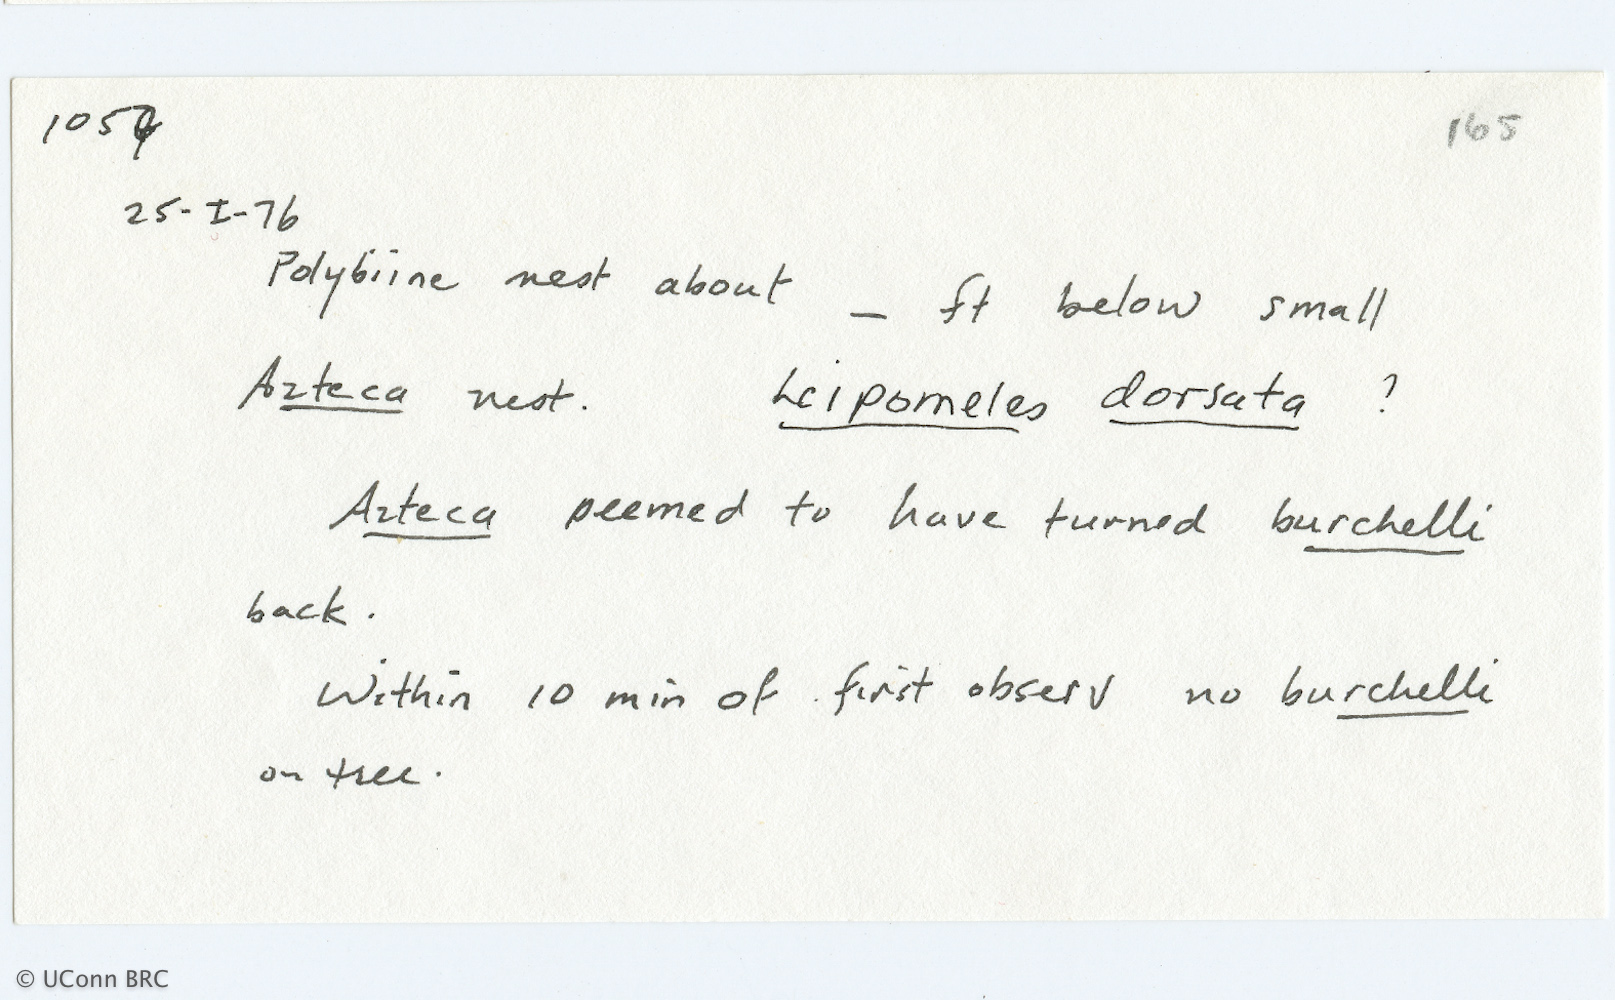 165
25-I-76
Polybiine nest about _ ft below small
Azteca nest. Leipomeles dorsata ?
Azteca seemed to have turned burchelli
back.
Within 10 min of first observ no burchelli
on tree.
© UConn BRC